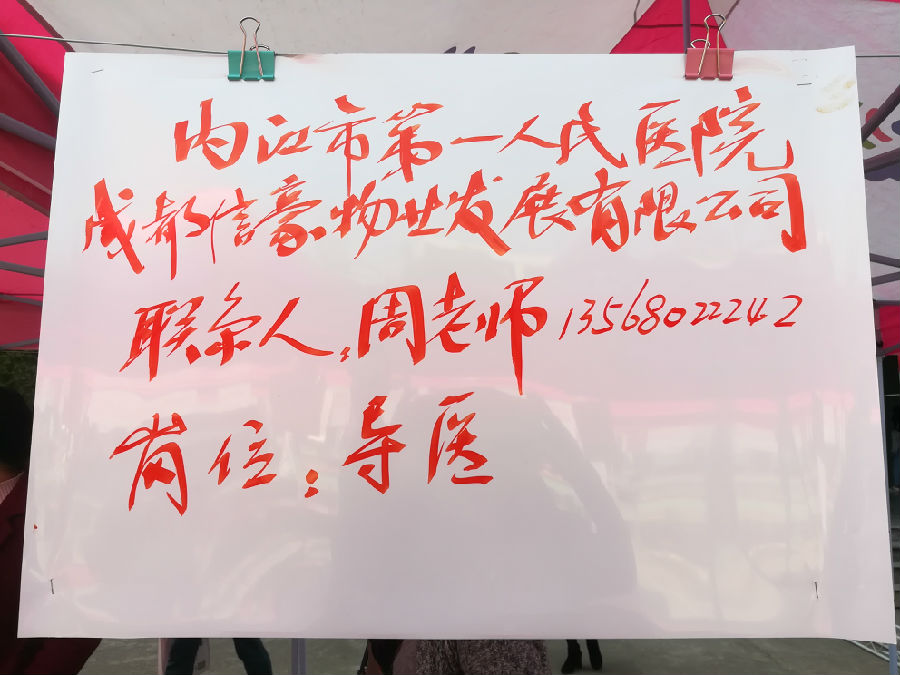 内江市第一人民医院
成都信豪物业发展有限公司
联系人:周老师 13568022242
岗位:导医